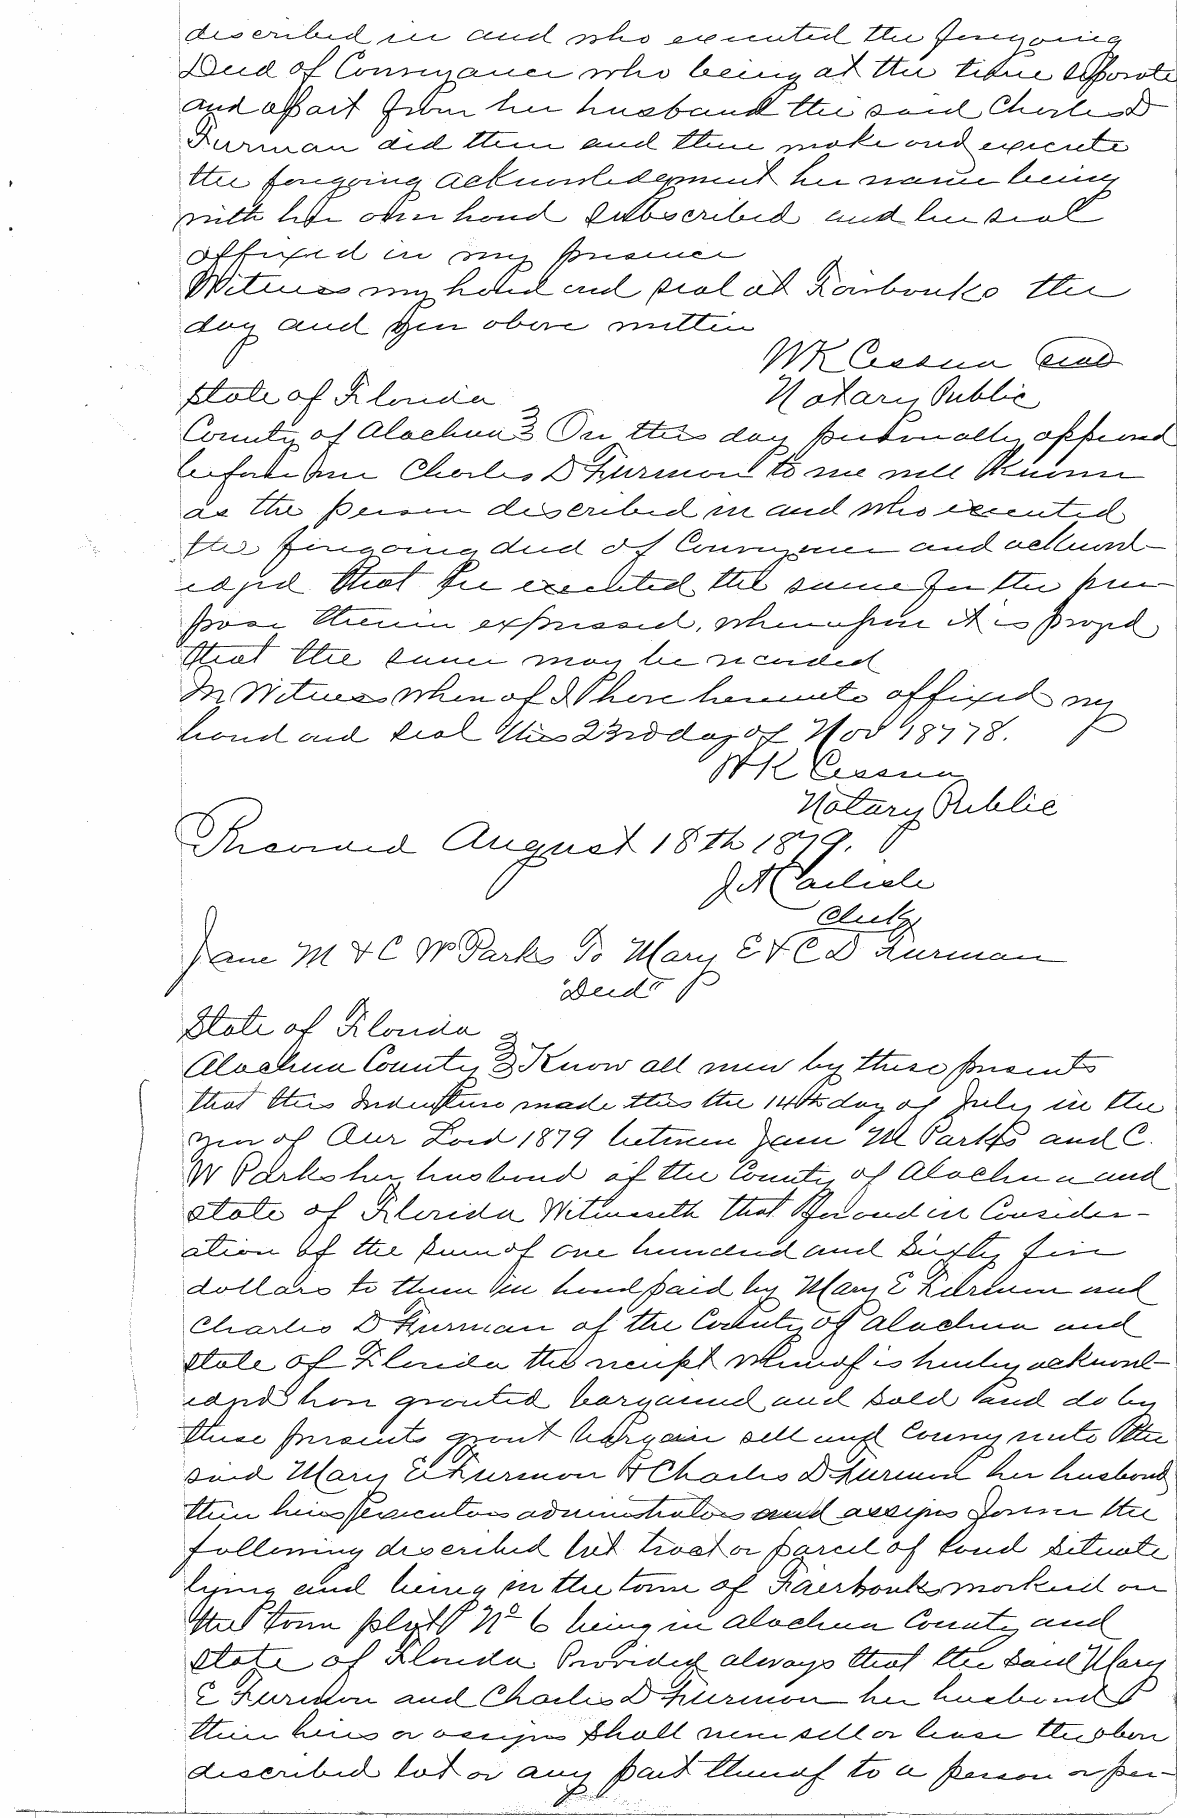 described in and who executed the foregoing
Deed of Conveyance who being at the time separate
and apart from her husband the said Charles D
Furman did then and there make and execute
the foregoing acknowledgement her name being
with her own hand subscribed and her seal
affixed in my presence
Witness my hand and seal at Fairbanks the
day and year above written
WK Cessna seal
State of Florida
Notary Public
County of Alachua } On this day personally appeared
before me Charles D Furman to me well known
as the person described in and who executed
the foregoing deed of Conveyance and acknowl-
edged that he executed the same for the pur-
pose therein expressed, whereupon it is prayed
that the same may be recorded
In Witness whereof I have hereunto affixed my
hand and seal this 23rd day of Nov 18778.
WK Cessna
Notary Public
Recorded August 18th 1879.
J A Carlisle
Clerk
Jane M & C W Parks To Mary E & C D Furman
"Deed"
State of Florida
Alachua County } Know all men by these presents
that this Indenture made this the 14th day of July in the
year of Our Lord 1879 between Jane M Parks and C.
W Parks her husband of the County of Alachua and
state of Florida Witnesseth that for and in Consider-
ation of the sum of one hundred and sixty five
dollars to them in hand paid by Mary E Furman and
Charles D Furman of the County of Alachua and
state of Florida the receipt whereof is hereby acknowl-
edged have granted bargained and sold and do by
these presents grant bargain sell and convey unto the
said Mary E Furman & Charles D Furman her husband
their heirs executors administrators and assigns forever the
following described lot tract or parcel of land situate
lying and being in the town of Fairbanks marked on
the town plat No 6 being in Alachua County and
State of Florida Provided always that the said Mary
E Furman and Charles D Furman her husband
their heirs or assigns shall never sell or lease the above
described lot or any part thereof to a person or per-